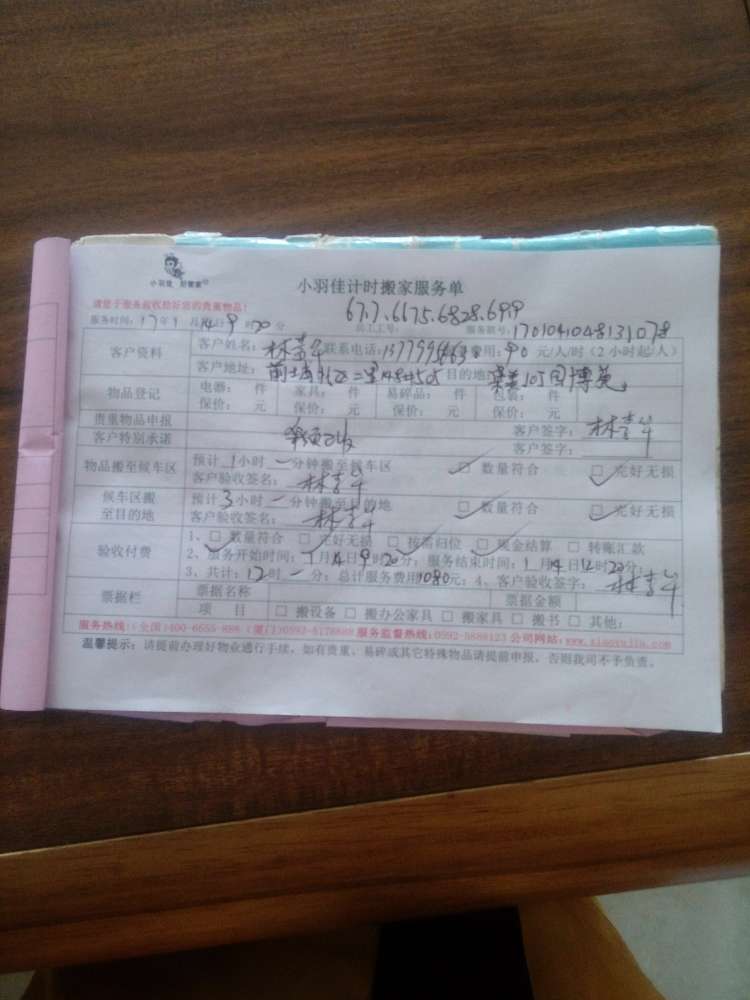 小羽佳 好管家
小羽佳计时搬家服务单
请您于服务前收拾好您的贵重物品!
67.7.6675.6828.6919
服务时间: 17年1月14日9时20分 员工工号: 服务単号: 1701041048131078
客户资料 客户姓名: 林青年 联系电话: 费用: 90 元/人/时 (2小时起/人)
客户地址: 目的地:
物品登记 电器: 件 家具: 件 易碎品: 件 包装: 件
保价: 元 保价: 元 保价: 元 保价: 元
贵重物品申报 客户签字: 林青年
客户特别承诺 客户签字:
物品搬至候车区 预计 1小时 一分钟搬至候车区 □ 数量符合 □ 完好无损
客户验收签名: 林青年
候车区搬至目的地 预计 3小时 一分钟搬至目的地 □ 数量符合 □ 完好无损
客户验收签名: 林青年
验收付费 1、□ 数量符合 □ 完好无损 □ 按需归位 □ 现金结算 □ 转账汇款
2、服务开始时间: 1月14日9时20分; 服务结束时间: 1月14日12时20分;
3、共计: 12时一分; 总计服务费用1080元; 4、客户验收签字: 林青年
票据栏 票据名称 票据金额
项 目 □ 搬设备 □ 搬办公家具 □ 搬家具 □ 搬书 □ 其他:
服务热线: (全国)400-6655-888 (厦门)0592-5178888 服务监督热线: 0592-5888123 公司网站: www.xiaoyujia.com
温馨提示: 请提前办理好物业通行手续, 如有贵重、易碎或其它特殊物品请提前申报、否则我司不予负责。